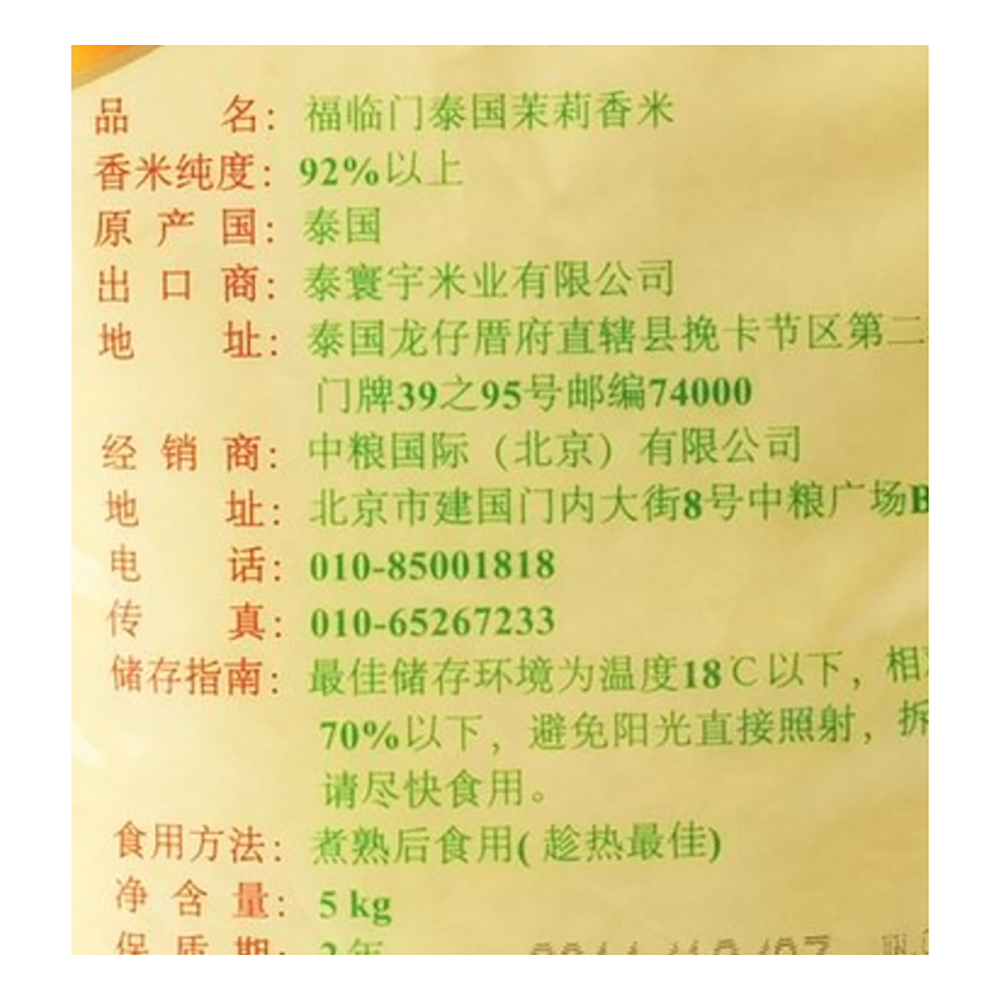 品名：福临门泰国茉莉香米
香米纯度：92%以上
原产国：泰国
出口商：泰寰宇米业有限公司
地址：泰国龙仔厝府直辖县挽卡节区第二
门牌39之95号邮编74000
经销商：中粮国际（北京）有限公司
地址：北京市建国门内大街8号中粮广场B
电话：010-85001818
传真：010-65267233
储存指南：最佳储存环境为温度18℃以下，相
70%以下，避免阳光直接照射，拆
请尽快食用。
食用方法：煮熟后食用( 趁热最佳)
净含量：5 kg
保质期：2年